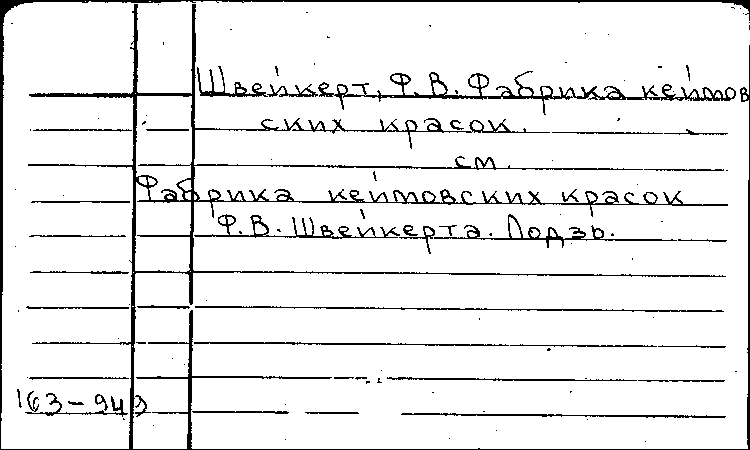 Швейкерт, Ф. В. Фабрика кеймов
ских красок.
см.
Фабрика кеймовских красок
Ф. В. Швейкерта. Лодзь.
163-949